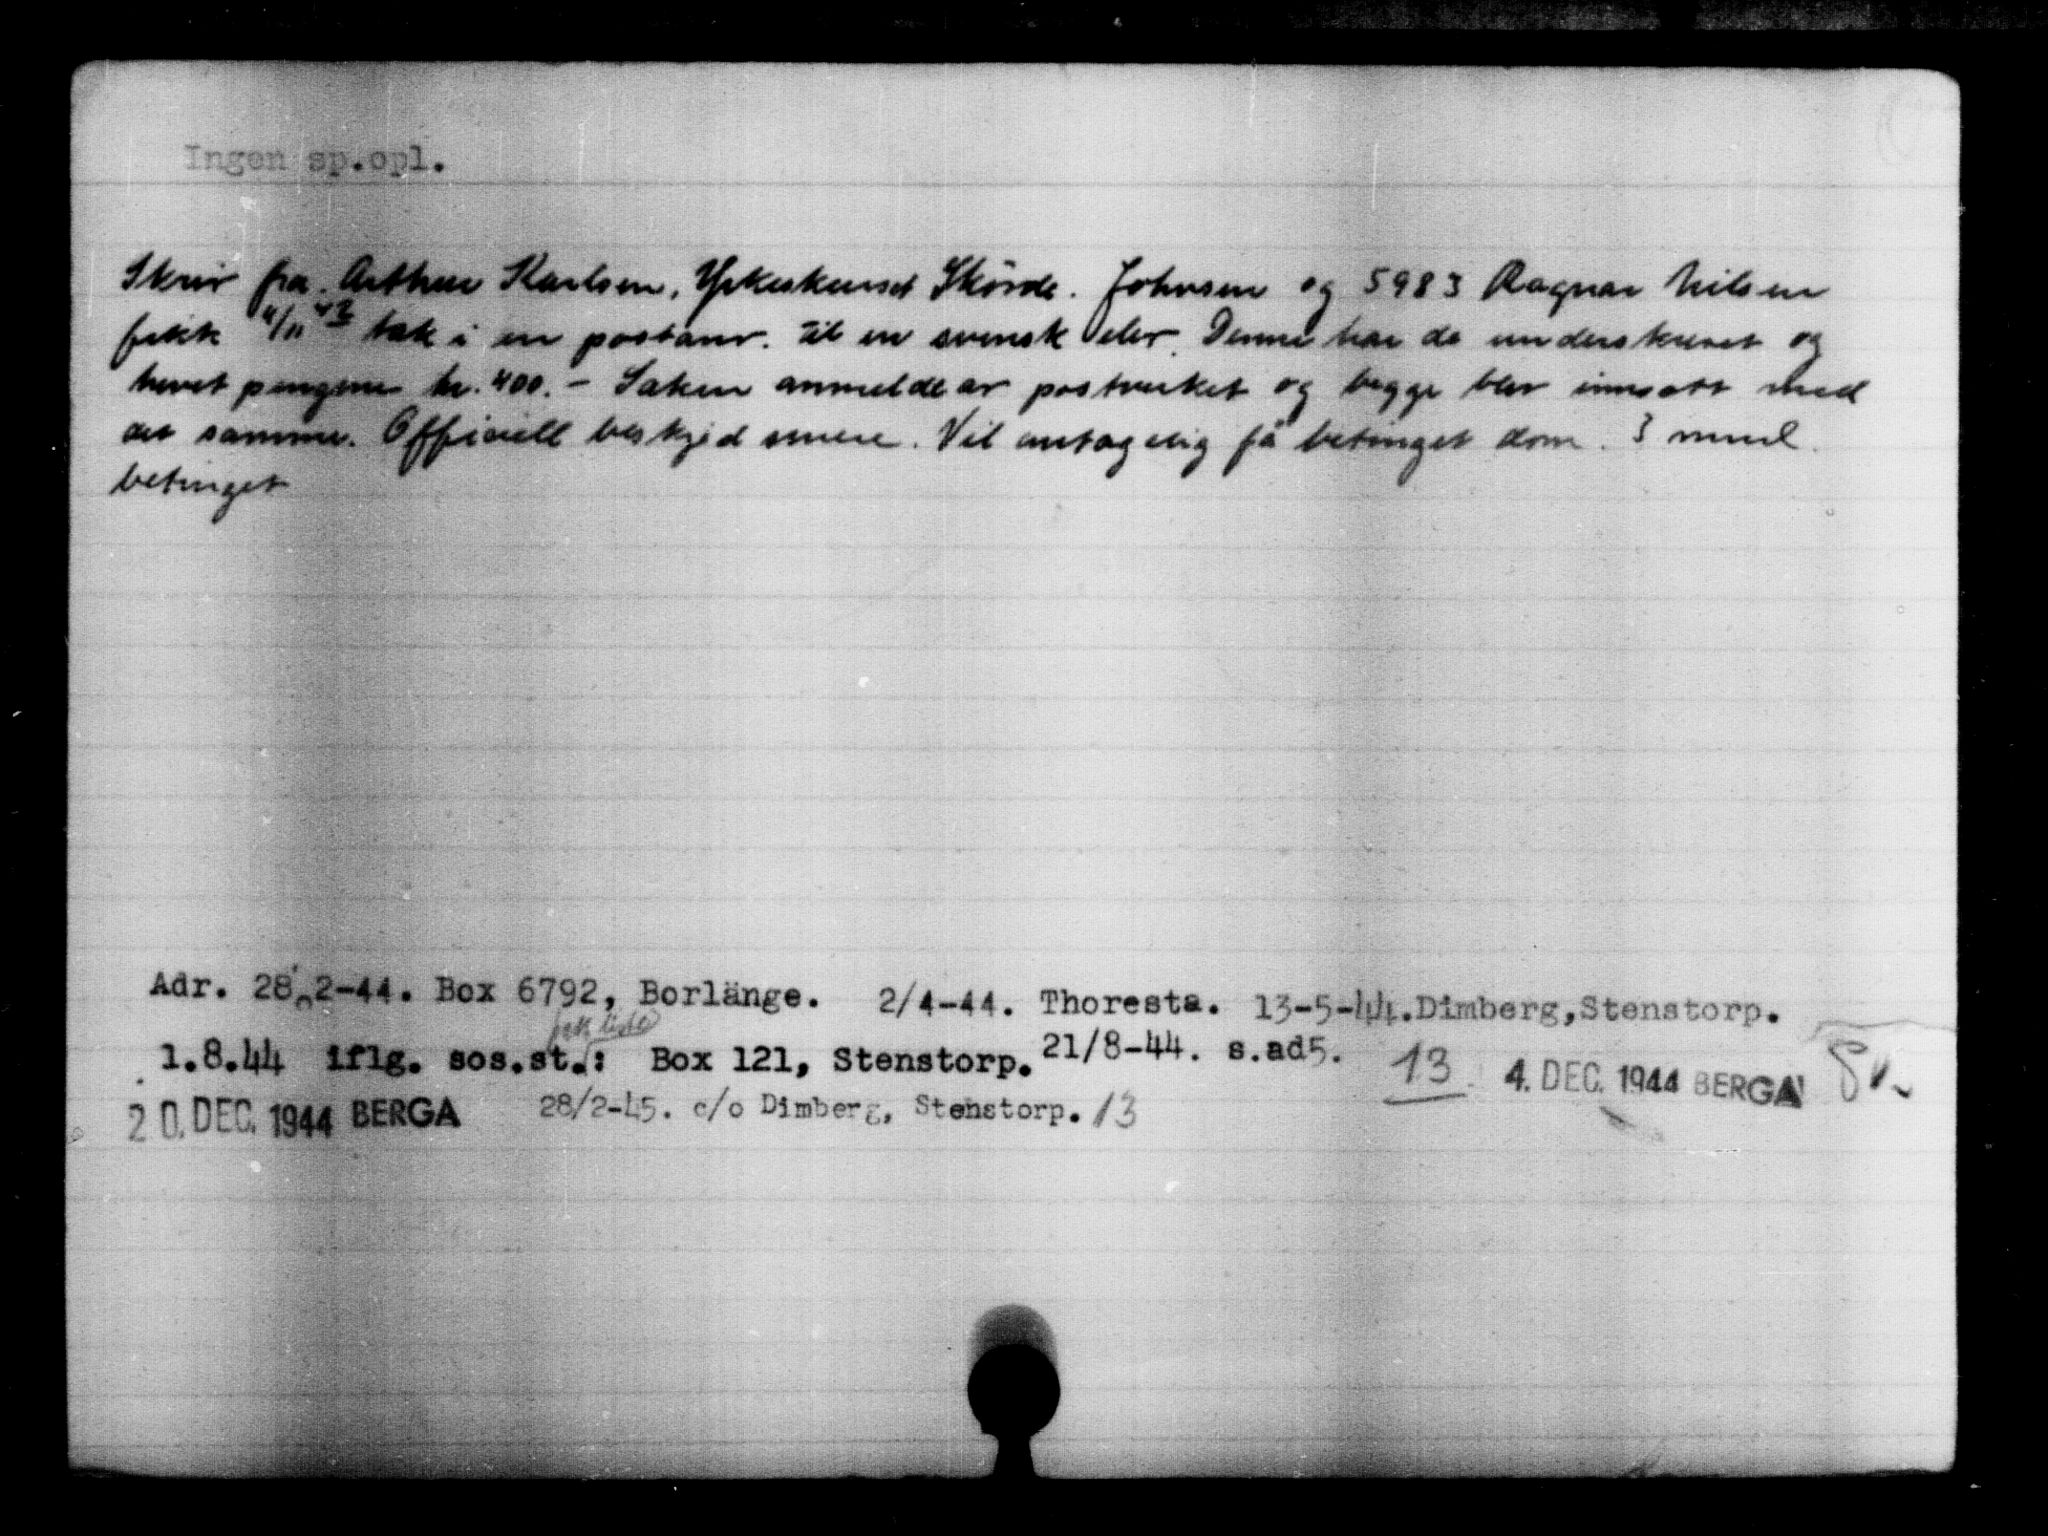 Ingen sp.opl.
Skriv fra. Arthur Karlsen, Yrkeskurset Skövde. Johnsen og 5983 Ragnar Nilsen
fikk 4/11 43 tak i en postanv. til en svensk elev. Denne har de underskrevet og
hevet pengene kr. 400.- Saken anmeldt av postverket og begge blev innsatt med
det samme. Officiell beskjed senere. Vil antagelig få betinget dom. 3 mnd.
betinget
Adr. 28.2-44. Box 6792, Borlänge. 2/4-44. Thoresta. 13-5-44. Dimberg, Stenstorp.
1.8.44 iflg. sos.st.: Box 121, Stenstorp. 21/8-44. s.ad5. 13 4. DEC. 1944 BERGA
20. DEC. 1944 BERGA 28/2-45. c/o Dimberg, Stenstorp. 13